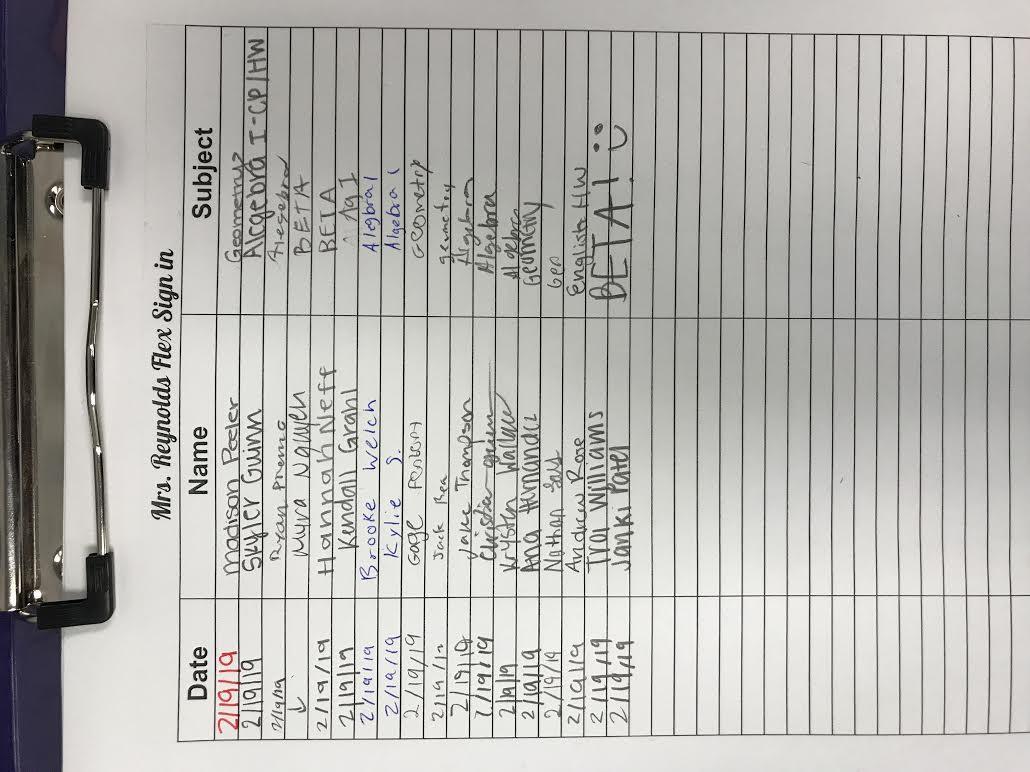 Mrs. Reynolds Flex Sign in
Date Name Subject
2/19/19 Madison Peeler Geometry
2/19/19 Skyler Guinn Alcgebra I-CP/HW
2/19/19 Ryan Algebra
↓ Myra Nguyen BETA
2/19/19 Hannah Neff BETA
2/19/19 Kendall Grahl Alg I
2/19/19 Brooke Welch Algebra 1
2/19/19 Kylie S. Algebra 1
2/19/19 Gage Geometry
2/19/19 Jack Rea geometry
2/19/19 Jake Thompson Algebra
2/19/19 Algebra
2/19/19 Krysten Wallace Algebra
2/19/19 Ana Hernandez Geometry
2/19/19 Nathan Geo
2/19/19 Andrew Rose English HW
2/19/19 Williams BETA! :)
2/19/19 Janki Patel